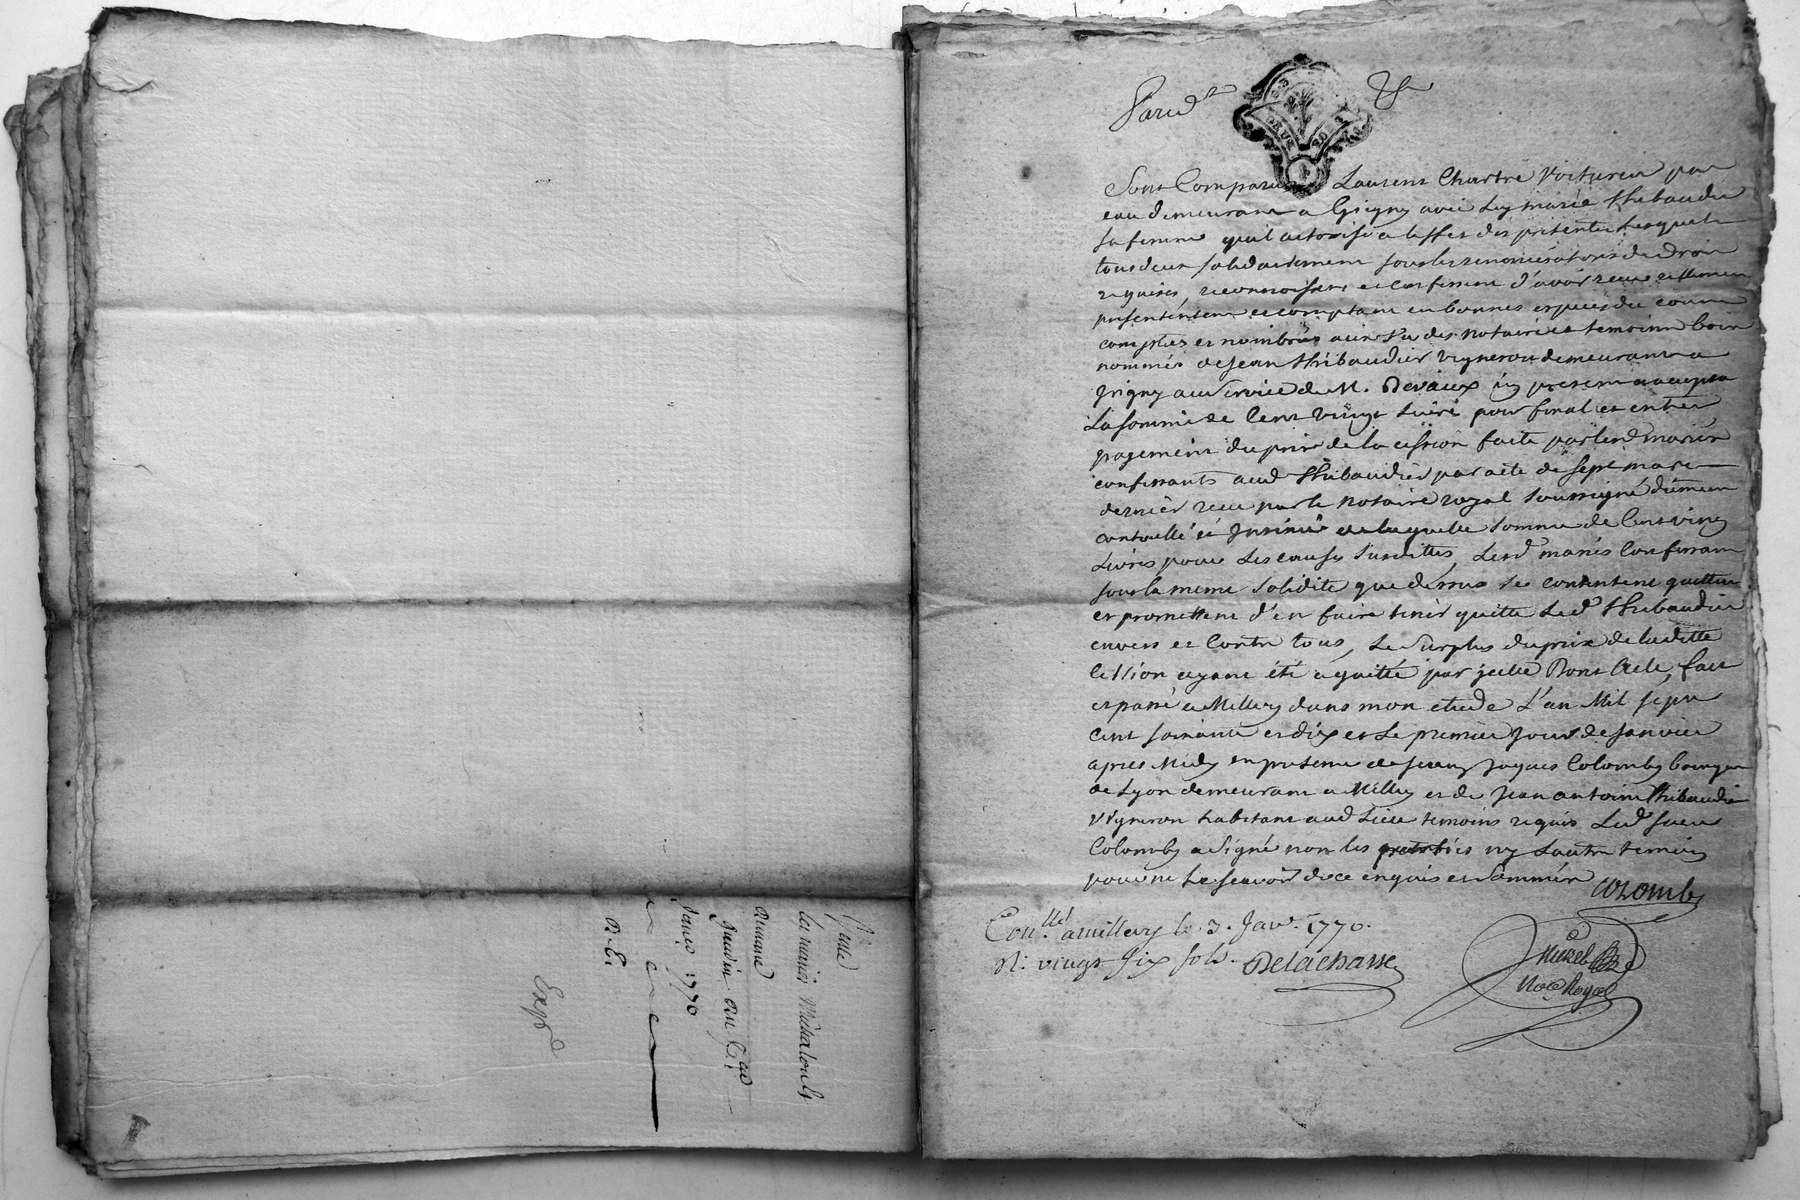 les mariés
janv. 1770
Expé
Pard.
DEUX SOLS
Sont Comparus Laurent Chartre Voiturier par
eau demeurant a Grigny avec luy marie Thibaudier
sa femme quil autorise a leffet des presentes Lesquels
tous deux solidairement sous les renonciations de droit
requises, reconnoissent et confessent d'avoir reçu réellement
presentement et comptant en bonnes especes du cours
comptées et nombrées aux vu des notaire et temoins bas
nommés de Jean Thibaudier vigneron demeurant a
Grigny au service de M. Devaux icy present et acceptant
La somme de Cent vingt Livres pour final et entier
payement du prix de la cession faite par lesd mariés
confessants aud Thibaudier par acte du sept mars
dernier reçu par le notaire royal soussigné dûment
controllé et Insinué de laquelle somme de Cent vingt
Livres pour les causes susdittes, Lesd mariés Confessant
sous la meme solidité que dessus se contentent quittent
et promettent d'en faire tenir quitte Led Thibaudier
envers et Contre tous, Le Surplus du prix de laditte
Cession ayant été aquitté par jcelle Dont Acte, fait
et passé a Millery dans mon etude L'an Mil sept
cent soixante et dix et Le premier Jour de Janvier
apres Midy en presence de sieur Jaques Colomby bourgeois
de Lyon demeurant a Millery et de Jean antoine Thibaudier
Vigneron habitant aud Lieu temoins requis Led sieur
Colomby a Signé non les parties ny Lautre temoin
pour ne Le sçavoir de ce enquis et sommés
COLOMBy
Con.llé a millery le 3. Janv. 1770.
R. vingt six sols. Delachasse
Not.e Royal